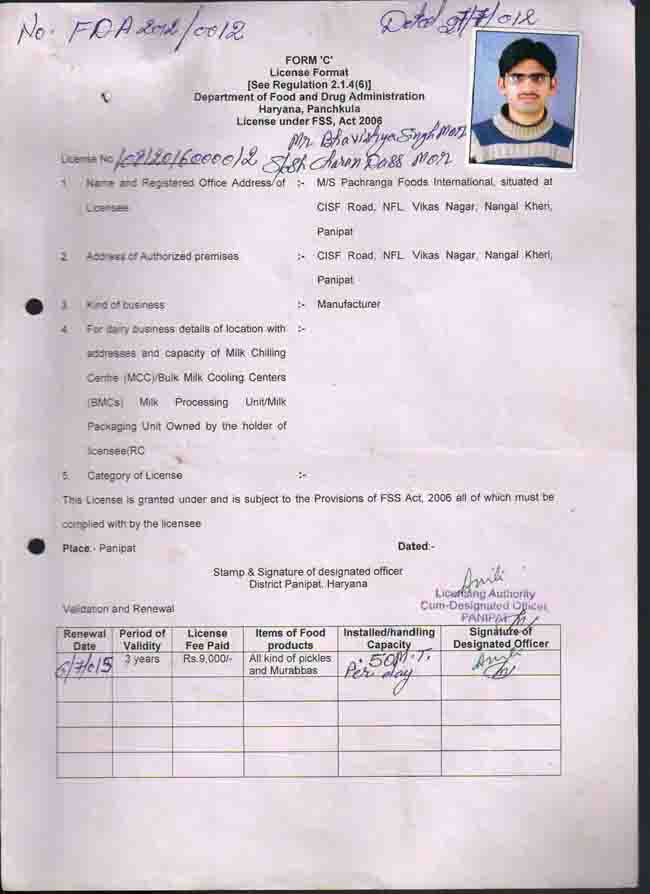 No. FDA 2012/0012
Dated 27/7/012
FORM 'C'
License Format
[See Regulation 2.1.4(6)]
Department of Food and Drug Administration
Haryana, Panchkula
License under FSS, Act 2006
Mr Bhavishya Singh Mor
License No
S/o Sh Charan Dass Mor
1. Name and Registered Office Address of Licensee :- M/S Pachranga Foods International, situated at
CISF Road, NFL Vikas Nagar, Nangal Kheri,
Panipat
2. Address of Authorized premises :- CISF Road, NFL Vikas Nagar, Nangal Kheri,
Panipat
3. Kind of business :- Manufacturer
4. For dairy business details of location with :-
addresses and capacity of Milk Chilling
Centre (MCC)/Bulk Milk Cooling Centers
(BMCs) Milk Processing Unit/Milk
Packaging Unit Owned by the holder of
licensee(RC
5. Category of License :-
This License is granted under and is subject to the Provisions of FSS Act, 2006 all of which must be
complied with by the licensee
Place:- Panipat Dated:-
Stamp & Signature of designated officer
District Panipat, Haryana
Licensing Authority
Cum-Designated Officer
PANIPAT
Validation and Renewal
Renewal Date Period of Validity License Fee Paid Items of Food products Installed/handling Capacity Signature of Designated Officer
6/7/015 3 years Rs.9,000/- All kind of pickles and Murabbas 50 M.T. Per day